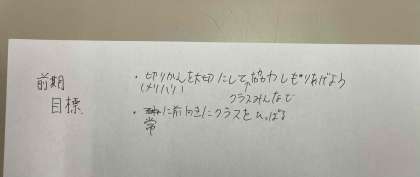 前期
目標
・切りかえを大切にして、おおかわしもりあげよう
(メリハリ)
クラスみんなで
・常に前向きにクラスをひっぱる